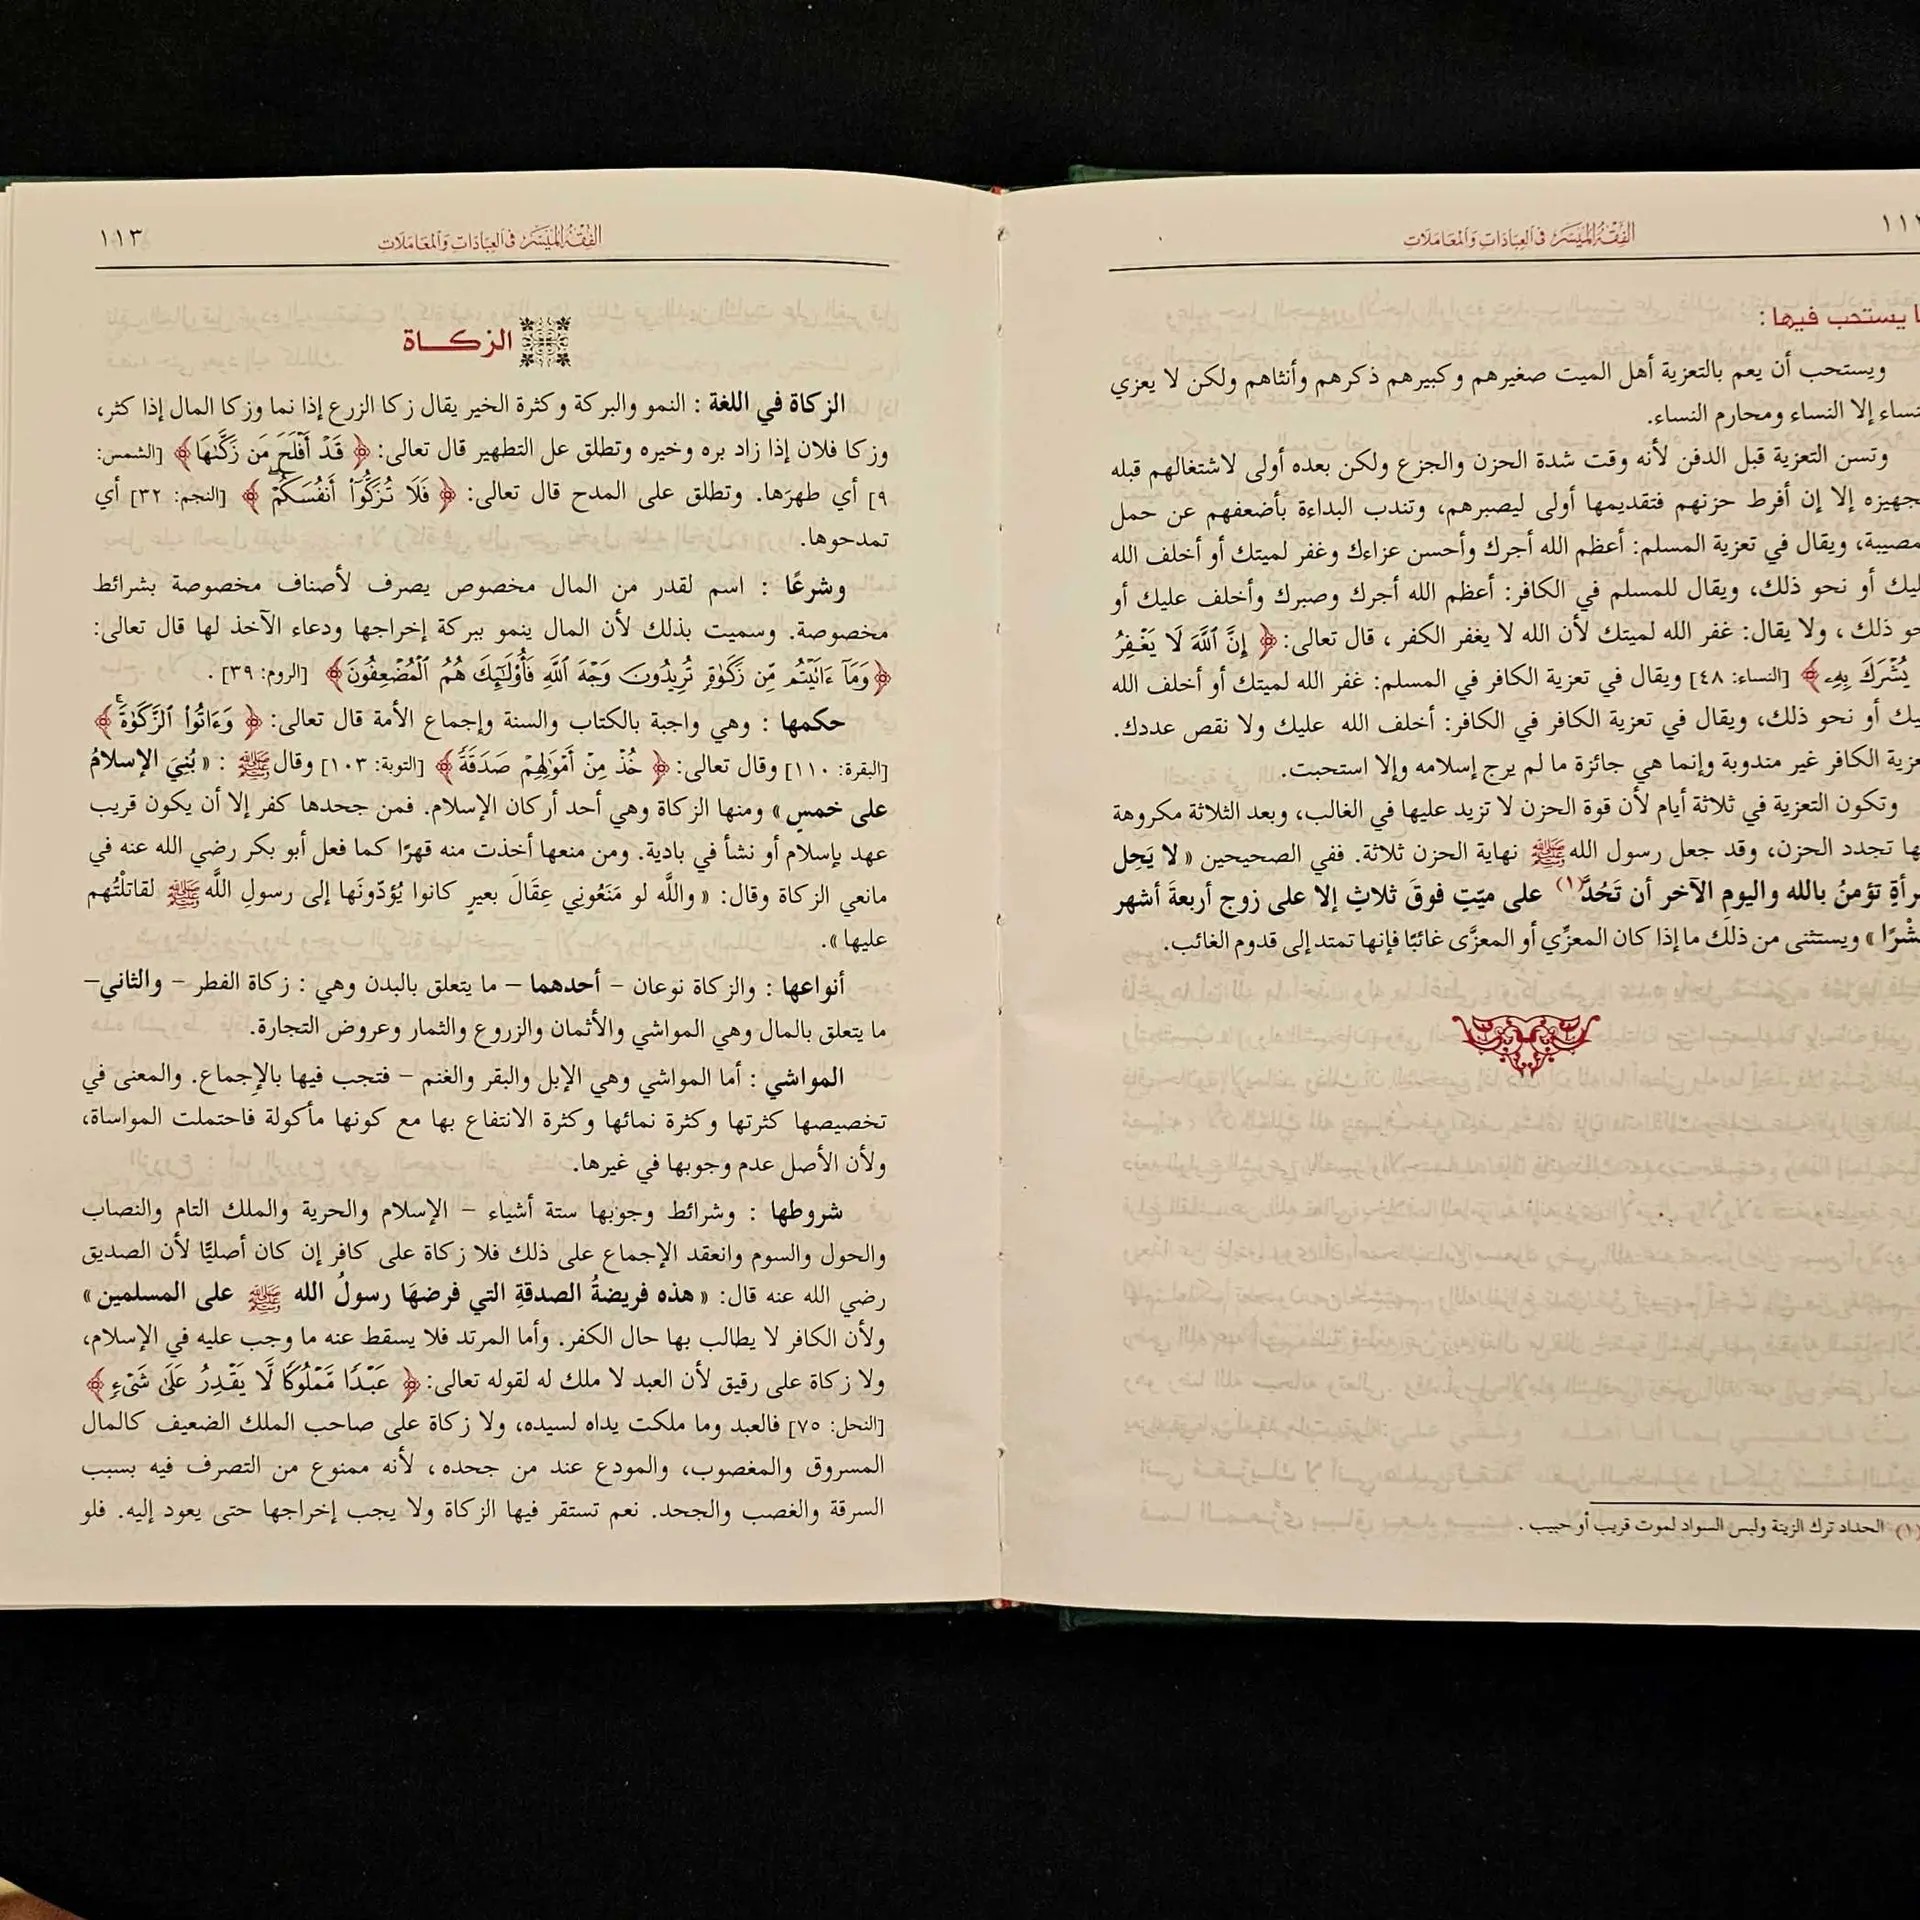 الفِقْهُ المُيَسَّر في العِبَادَاتِ وَالمُعَامَلَات
يستحب فيها :
ويستحب أن يعم بالتعزية أهل الميت صغيرهم وكبيرهم ذكرهم وأنثاهم ولكن لا يعزي
إلا النساء ومحارم النساء.
وتسن التعزية قبل الدفن لأنه وقت شدة الحزن والجزع ولكن بعده أولى لاشتغالهم قبله
إلا إن أفرط حزنهم فتقديمها أولى ليصبرهم، وتندب البداءة بأضعفهم عن حمل
ويقال في تعزية المسلم: أعظم الله أجرك وأحسن عزاءك وغفر لميتك أو أخلف الله
أو نحو ذلك، ويقال للمسلم في الكافر: أعظم الله أجرك وصبرك وأخلف عليك أو
ذلك ، ولا يقال: غفر الله لميتك لأن الله لا يغفر الكفر ، قال تعالى: ﴿ إِنَّ ٱللَّهَ لَا يَغْفِرُ
يُشْرَكَ بِهِۦ ﴾ [النساء: ٤٨] ويقال في تعزية الكافر في المسلم: غفر الله لميتك أو أخلف الله
أو نحو ذلك، ويقال في تعزية الكافر في الكافر: أخلف الله عليك ولا نقص عددك.
الكافر غير مندوبة وإنما هي جائزة ما لم يرج إسلامه وإلا استحبت.
وتكون التعزية في ثلاثة أيام لأن قوة الحزن لا تزيد عليها في الغالب، وبعد الثلاثة مكروهة
تجدد الحزن، وقد جعل رسول الله ﷺ نهاية الحزن ثلاثة. ففي الصحيحين « لا يَحِل
تؤمنُ بالله واليومِ الآخر أن تَحُدَّ(١) على ميّتِ فوقَ ثلاثِ إلا على زوج أربعةَ أشهر
» ويستثنى من ذلك ما إذا كان المعزِّي أو المعزَّى غائبًا فإنها تمتد إلى قدوم الغائب.
(١) الحداد ترك الزينة ولبس السواد لموت قريب أو حبيب .
الفِقْهُ المُيَسَّر في العِبَادَاتِ وَالمُعَامَلَات
١١٣
الزكـــاة
الزكاة في اللغة : النمو والبركة وكثرة الخير يقال زكا الزرع إذا نما وزكا المال إذا كثر،
وزكا فلان إذا زاد بره وخيره وتطلق عل التطهير قال تعالى: ﴿ قَدْ أَفْلَحَ مَن زَكَّىٰهَا ﴾ [الشمس:
٩] أي طهرَها. وتطلق على المدح قال تعالى: ﴿ فَلَا تُزَكُّوٓا۟ أَنفُسَكُمْ ۖ ﴾ [النجم: ٣٢] أي
تمدحوها.
وشرعًا : اسم لقدر من المال مخصوص يصرف لأصناف مخصوصة بشرائط
مخصوصة. وسميت بذلك لأن المال ينمو ببركة إخراجها ودعاء الآخذ لها قال تعالى:
﴿ وَمَآ ءَاتَيْتُم مِّن زَكَوٰةٍ تُرِيدُونَ وَجْهَ ٱللَّهِ فَأُو۟لَـٰٓئِكَ هُمُ ٱلْمُضْعِفُونَ ﴾ [الروم: ٣٩] .
حكمها : وهي واجبة بالكتاب والسنة وإجماع الأمة قال تعالى: ﴿ وَءَاتُوا۟ ٱلزَّكَوٰةَ ۚ ﴾
[البقرة: ١١٠] وقال تعالى: ﴿ خُذْ مِنْ أَمْوَٰلِهِمْ صَدَقَةً ﴾ [التوبة: ١٠٣] وقال ﷺ : « بُنِيَ الإسلامُ
على خمسٍ » ومنها الزكاة وهي أحد أركان الإسلام. فمن جحدها كفر إلا أن يكون قريب
عهد بإسلام أو نشأ في بادية. ومن منعها أخذت منه قهرًا كما فعل أبو بكر رضي الله عنه في
مانعي الزكاة وقال: « واللَّه لو مَنَعُوني عِقَالَ بعيرٍ كانوا يُؤدّونَها إلى رسولِ اللَّه ﷺ لقاتلْتُهم
عليها ».
أنواعها : والزكاة نوعان – أحدهما – ما يتعلق بالبدن وهي : زكاة الفطر – والثاني–
ما يتعلق بالمال وهي المواشي والأثمان والزروع والثمار وعروض التجارة.
المواشي : أما المواشي وهي الإبل والبقر والغنم – فتجب فيها بالإجماع. والمعنى في
تخصيصها كثرتها وكثرة نمائها وكثرة الانتفاع بها مع كونها مأكولة فاحتملت المواساة،
ولأن الأصل عدم وجوبها في غيرها.
شروطها : وشرائط وجوبها ستة أشياء – الإسلام والحرية والملك التام والنصاب
والحول والسوم وانعقد الإجماع على ذلك فلا زكاة على كافر إن كان أصليًّا لأن الصديق
رضي الله عنه قال: « هذه فريضةُ الصدقةِ التي فرضهَا رسولُ الله ﷺ على المسلمين »
ولأن الكافر لا يطالب بها حال الكفر. وأما المرتد فلا يسقط عنه ما وجب عليه في الإسلام،
ولا زكاة على رقيق لأن العبد لا ملك له لقوله تعالى: ﴿ عَبْدًا مَّمْلُوكًا لَّا يَقْدِرُ عَلَىٰ شَىْءٍ ﴾
[النحل: ٧٥] فالعبد وما ملكت يداه لسيده، ولا زكاة على صاحب الملك الضعيف كالمال
المسروق والمغصوب، والمودع عند من جحده، لأنه ممنوع من التصرف فيه بسبب
السرقة والغصب والجحد. نعم تستقر فيها الزكاة ولا يجب إخراجها حتى يعود إليه. فلو